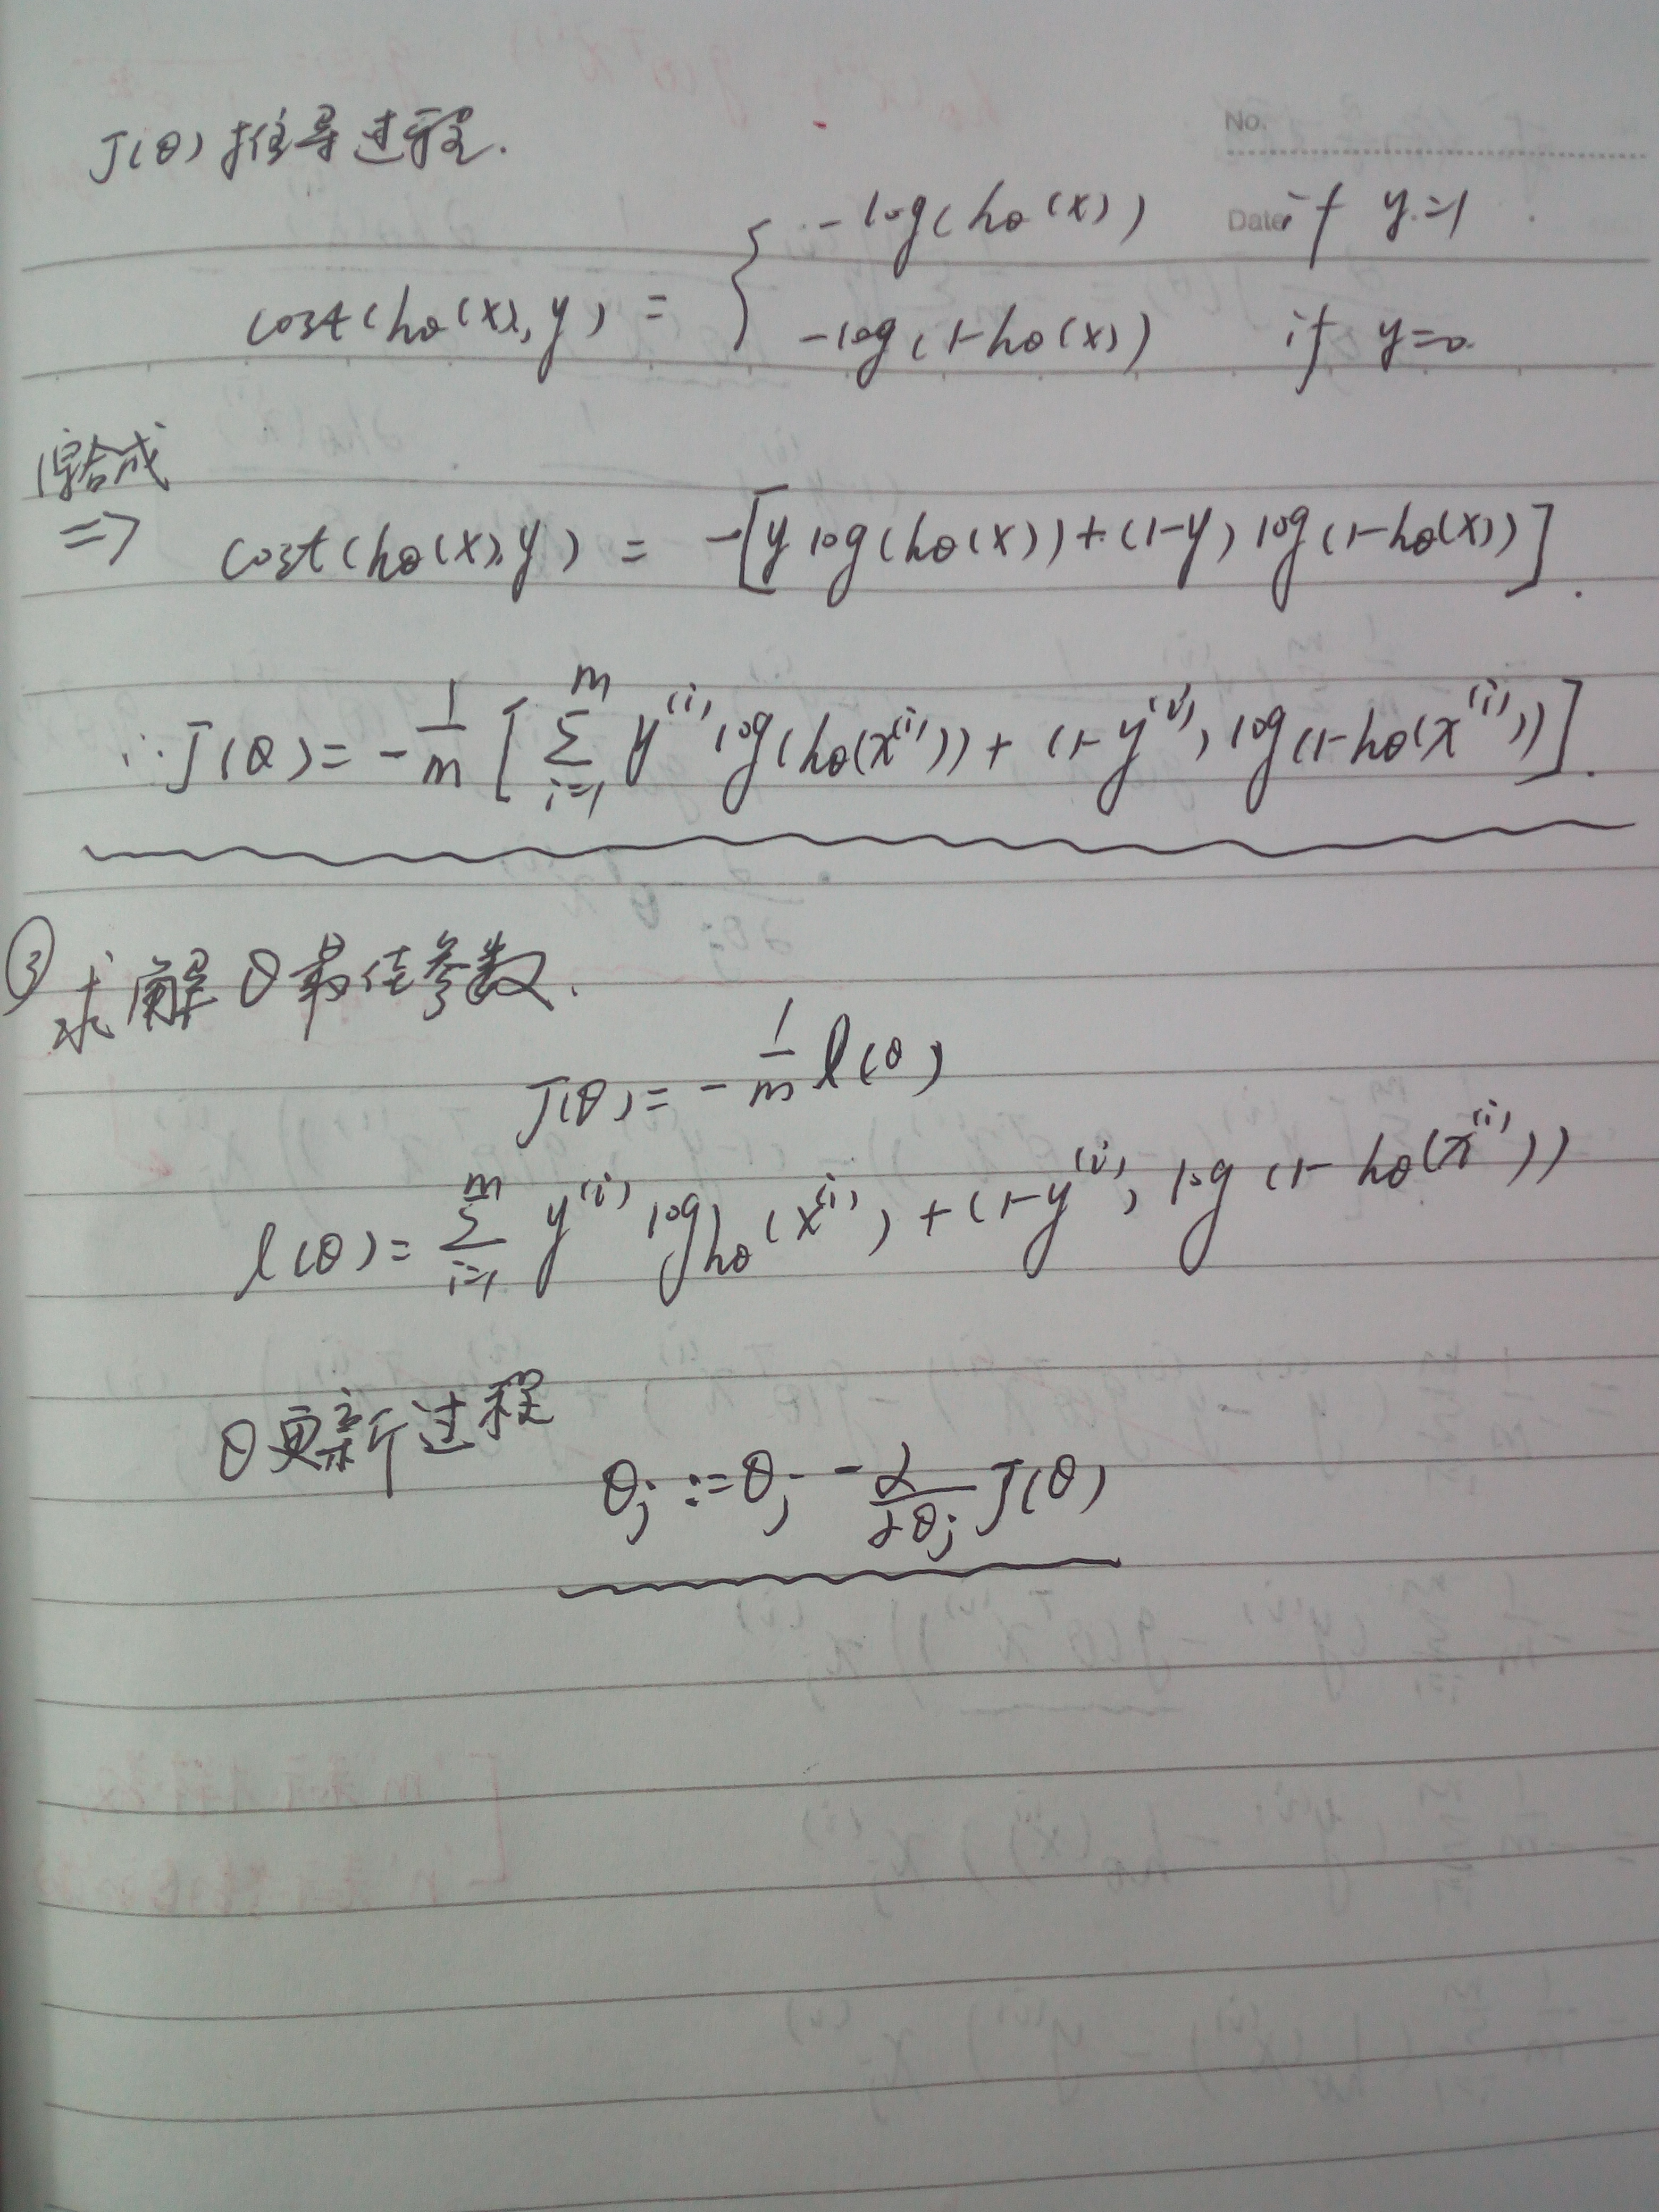 J(θ)推导过程.
No.
Date
cost(hθ(x),y) = { -log(hθ(x)) if y=1
-log(1-hθ(x)) if y=0
综合成
=> cost(hθ(x),y) = -[y log(hθ(x)) + (1-y) log(1-hθ(x))].
∴J(θ) = -1/m [∑_{i=1}^{m} y^(i) log(hθ(x^(i))) + (1-y^(i)) log(1-hθ(x^(i)))].
③ 求解θ最佳参数.
J(θ) = -1/m l(θ)
l(θ) = ∑_{i=1}^{m} y^(i) log hθ(x^(i)) + (1-y^(i)) log(1-hθ(x^(i)))
θ更新过程
θj := θj - α/αθj J(θ)